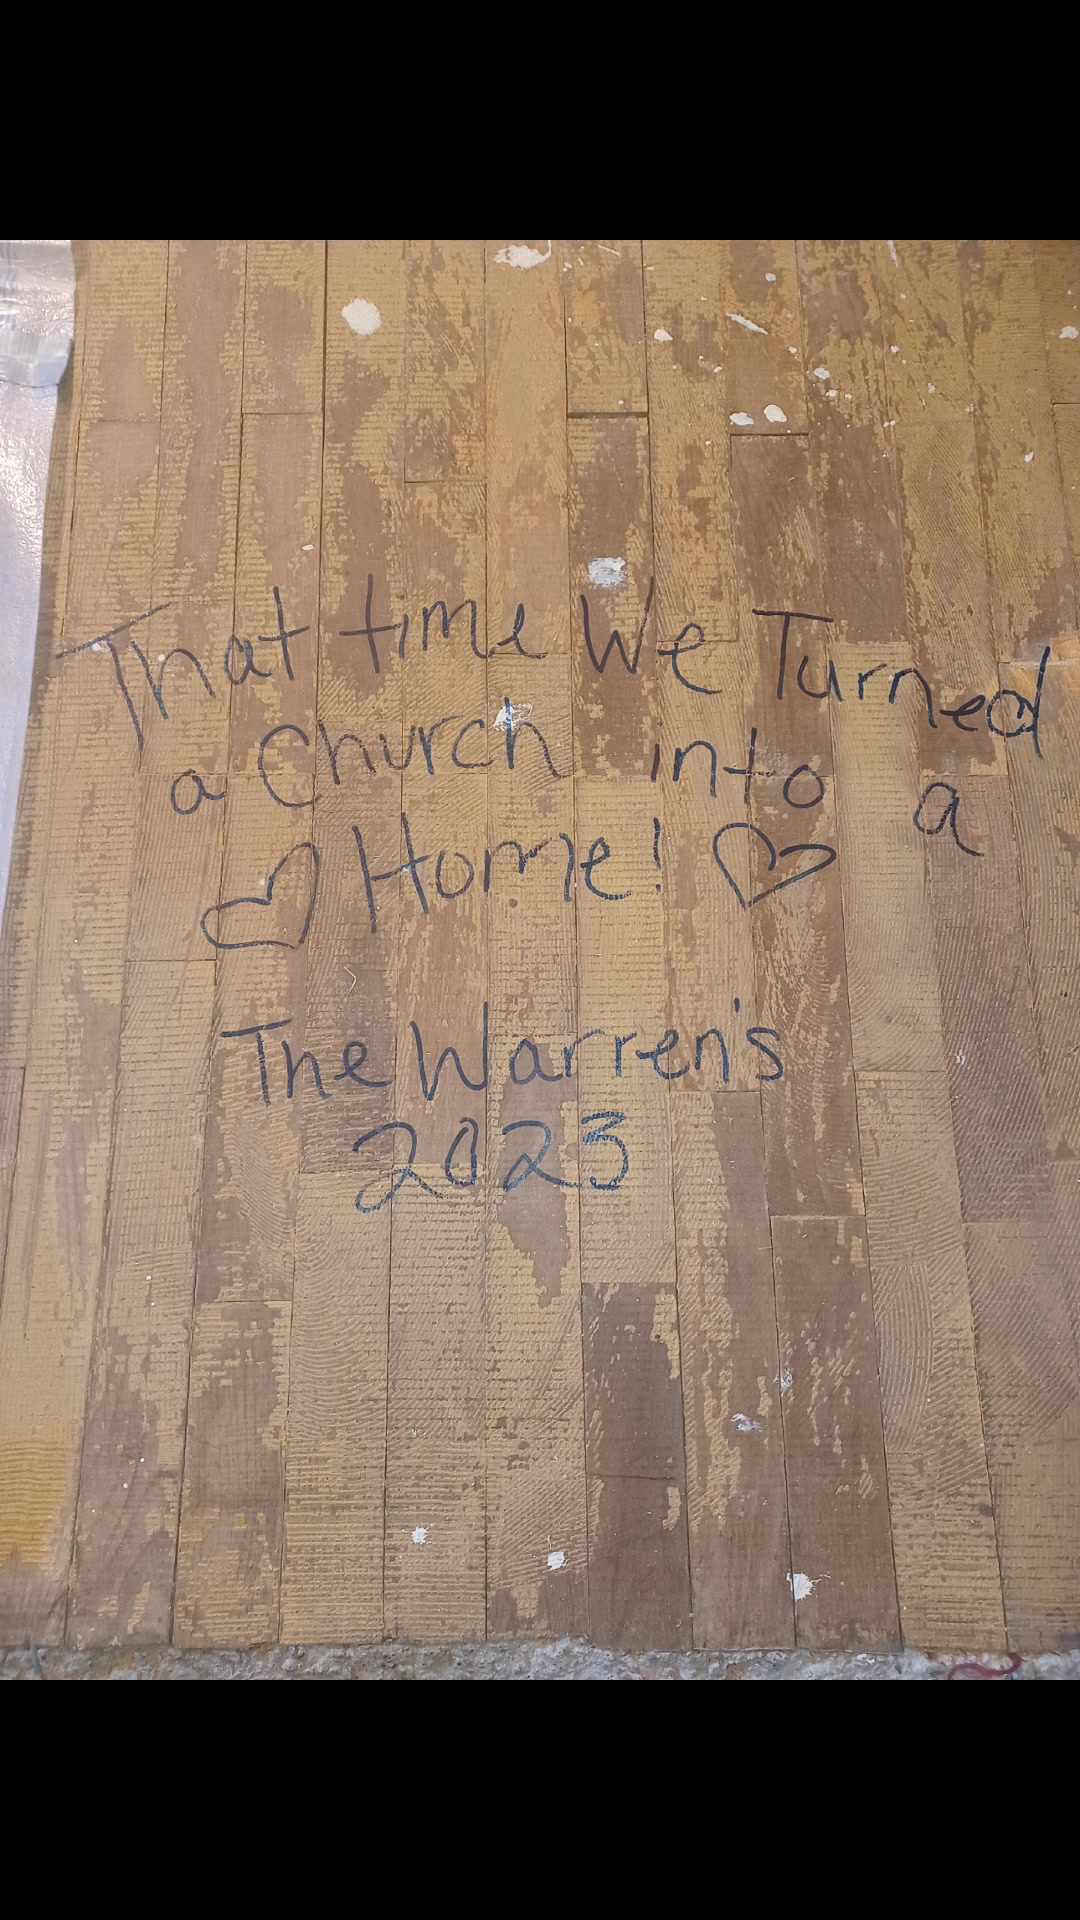 That time We Turned
a Church into a
♡ Home! ♡
The Warren's
2023